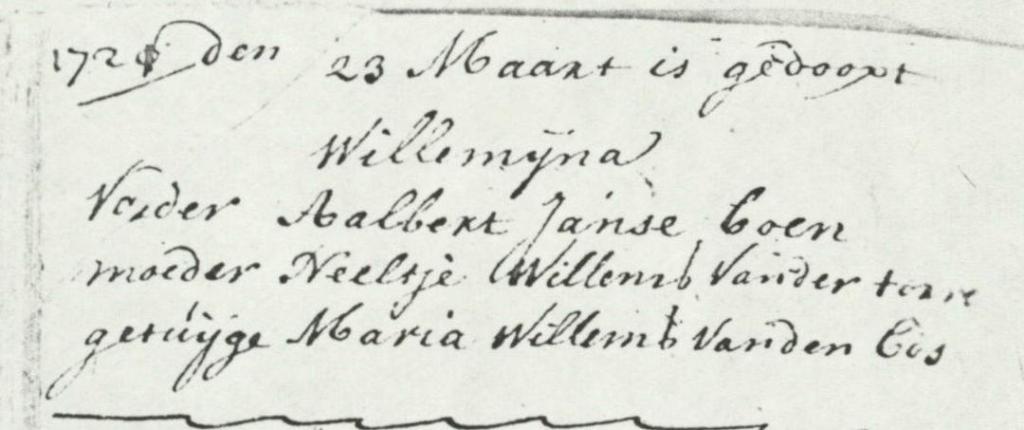 den 23 Maart is gedoopt
Willemÿna
Vader Aalbert Janse Coen
moeder Neeltje Willems Vander
getuÿge Maria Willems Vanden bos